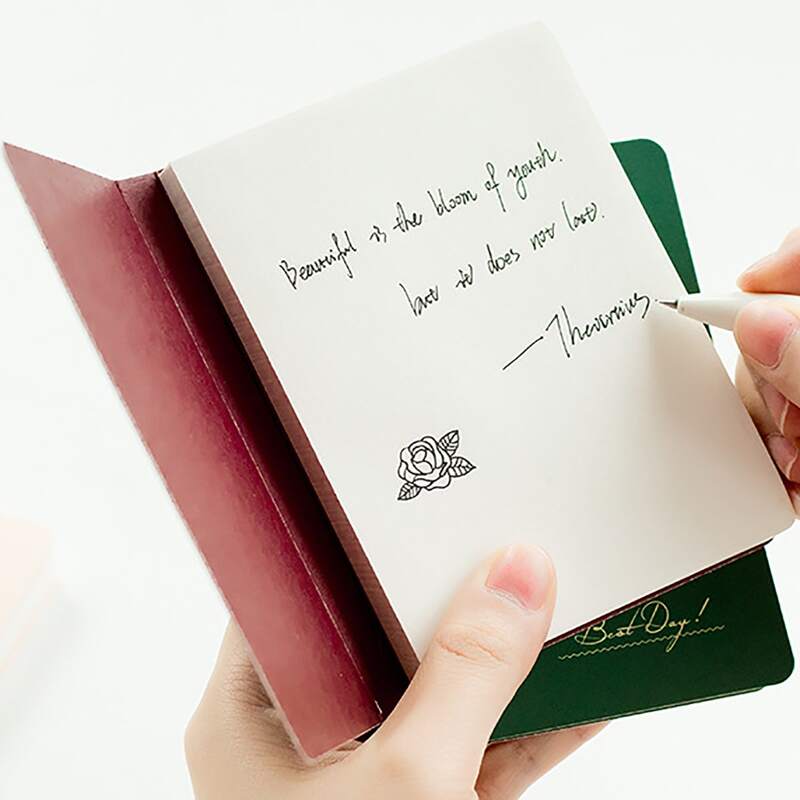 Beautiful is the bloom of youth.
but it does not last.
—Theocritus.
Best Day!